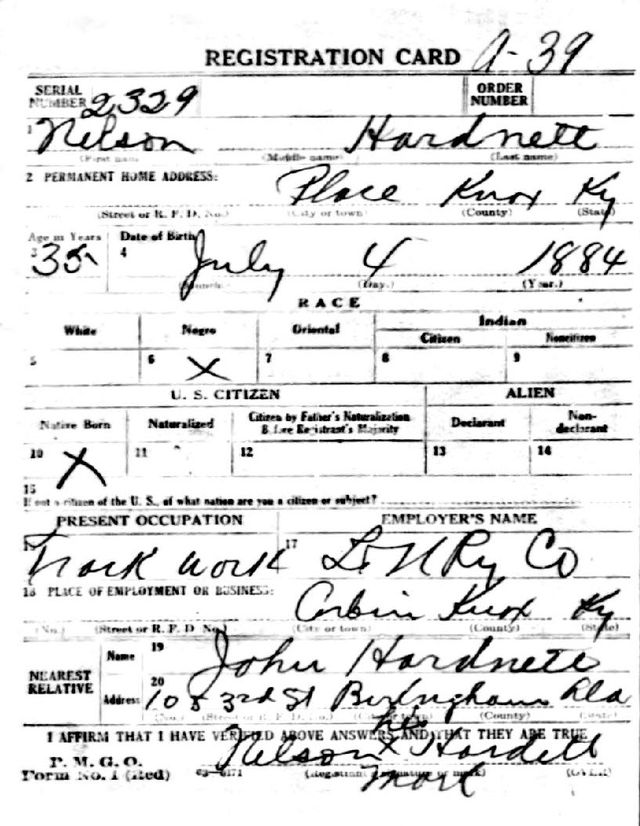 REGISTRATION CARD A-39
SERIAL NUMBER 2329 ORDER NUMBER
1 Nelson Hardnett
(First name) (Middle name) (Last name)
2 PERMANENT HOME ADDRESS:
Place Knox Ky
(Street or R. F. D. No.) (City or town) (County) (State)
Age in Years Date of Birth
3 35 4 July 4 1884
(Month.) (Day.) (Year.)
RACE
White Negro Oriental Indian
Citizen Noncitizen
5 6 X 7 8 9
U. S. CITIZEN ALIEN
Native Born Naturalized Citizen by Father's Naturalization Before Registrant's Majority Declarant Non-declarant
10 X 11 12 13 14
15
If not a citizen of the U. S., of what nation are you a citizen or subject?
PRESENT OCCUPATION EMPLOYER'S NAME
work 17 L & N Ry Co
18 PLACE OF EMPLOYMENT OR BUSINESS:
Corbin Knox Ky
(No.) (Street or R. F. D. No.) (City or town) (County) (State)
NEAREST RELATIVE Name 19 John Hardnett
Address 20 3rd St Ala
(No.) (Street or R. F. D. No.) (City or town) (County) (State)
I AFFIRM THAT I HAVE VERIFIED ABOVE ANSWERS AND THAT THEY ARE TRUE
his
P. M. G. O. Nelson X Hardett
Form No. 1 (Red) 03-6171 (Registrant's signature or mark) (OVER)
mark